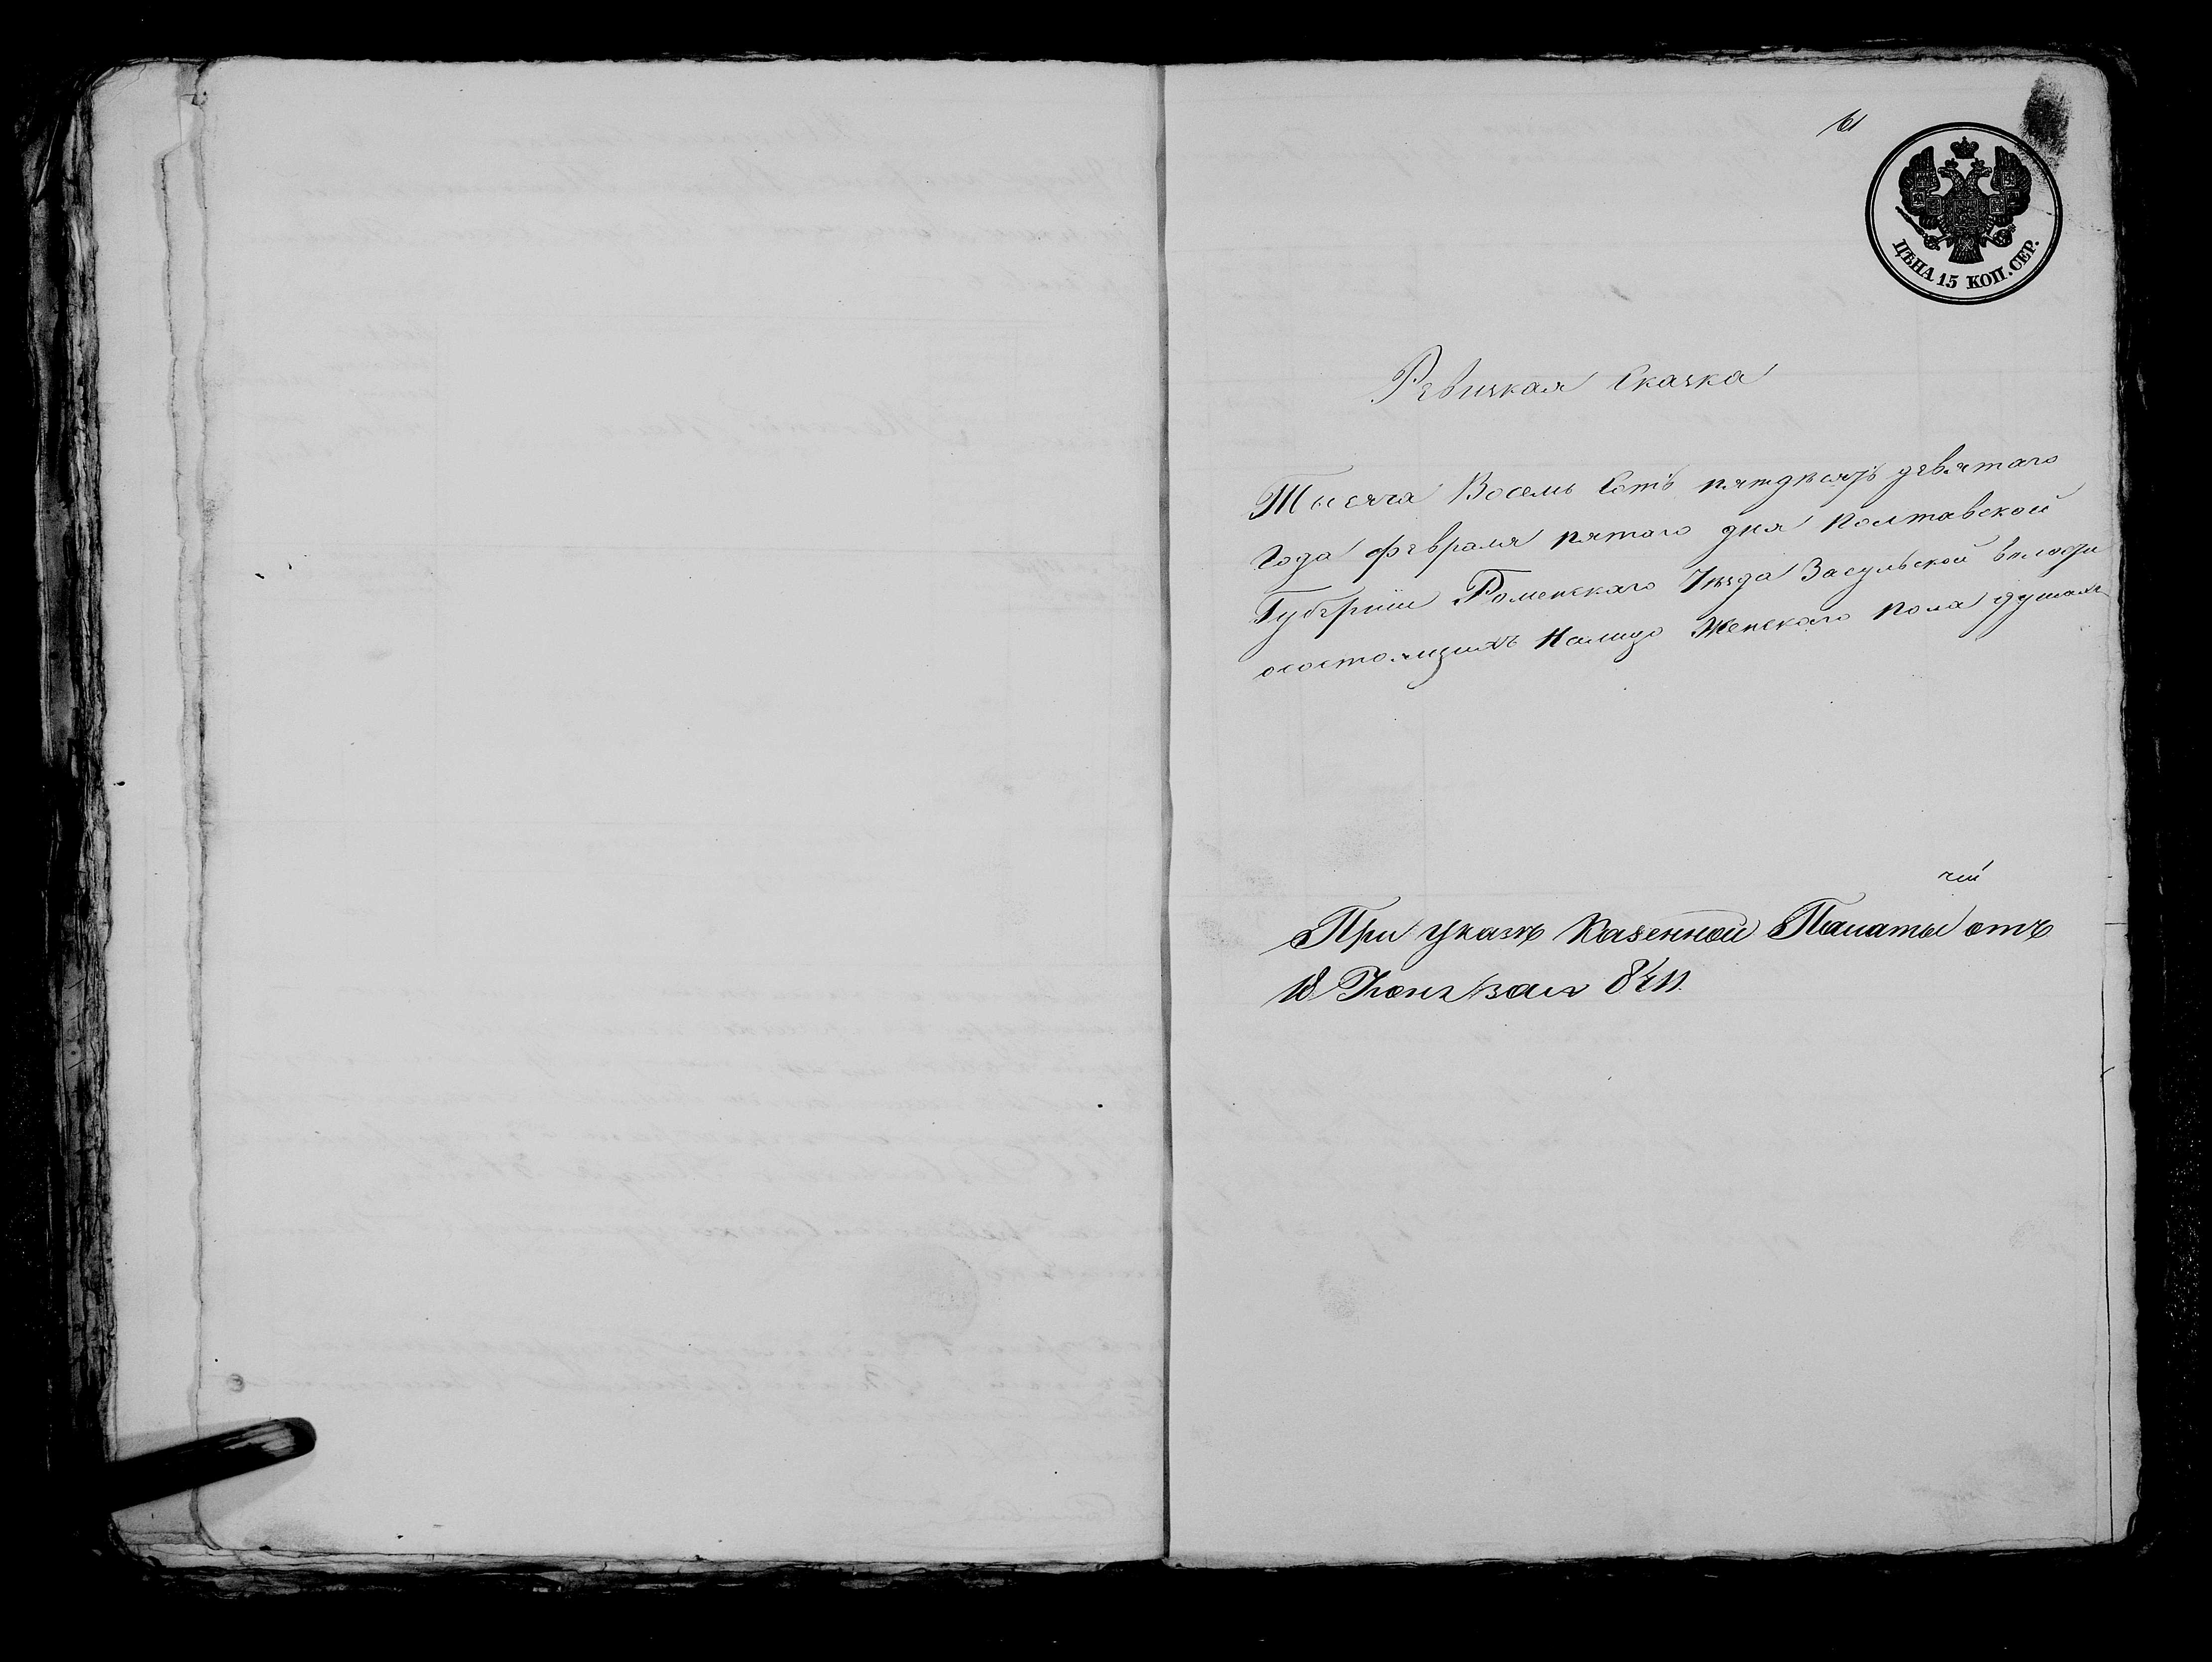 61
ЦѢНА 15 КОП. СЕР.
Ревизкая Сказка
Тысяча Восемь Сотъ пятдесятъ девятаго
Года февраля пятаго дня Полтавской
Губерніи Роменскаго Уѣзда Засульской волости
осостоящихъ Налицо Женскаго пола душахъ
При указѣ Казенной Палаты отъ
18 за № 8411